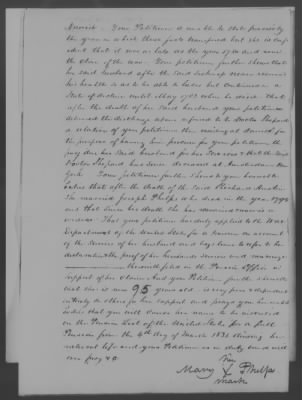 Your Petitioner is unable to state precisely
the year in which these facts transpired but she is confident
that it was as late as the year 1780 and near
the close of the war. Your petitioner further shows that
her said husband after the said discharge never recovered
his health so as to be able to labor but continued in a
State of decline until May 1785 when he died. That
after the death of her said husband your petitioner
delivered the discharge above referred to to Doctor Shepard
a relation of your petitioner then residing at
the purpose of having him procure for your petitioner the
pay due her said husband for his services that the said
Doctor Shepard has since deceased at Amsterdam New
York Your petitioner further shows to your honorable
that after the death of the said Richard Austin
She married Joseph Phelps who died in the year 1794
and that since his death she has remained a
widow. That your petitioner hereby applied to the War
Department of the United States for a Pension on account
of the services of her husband and begs leave to refer to her
declaration the proof of her husbands services and marriage
filed in the Pension Office in
support of her claim And your Petitioner further shows
that she is now 95 years old is very poor & dependent
entirely on others for her support and prays you to
order that you will cause her name to be inscribed
on the Pension List of the United States for a full
Pension from the 4th day of March 1831 during her
natural life and your Petitioner as in duty bound will
ever pray &c
her
Mary X Phelps
mark